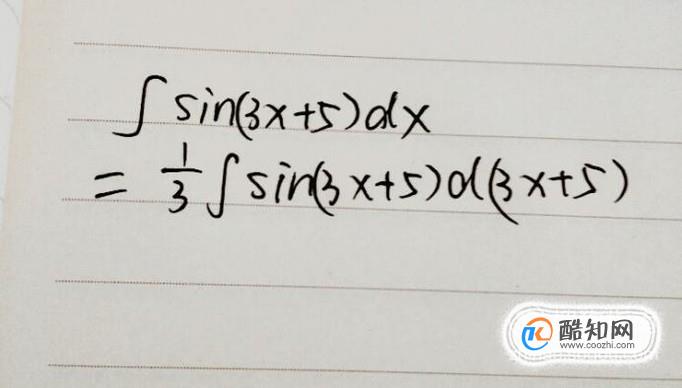 ∫ sin(3x+5)dx
= 1/3 ∫ sin(3x+5)d(3x+5)
酷知网
www.coozhi.com